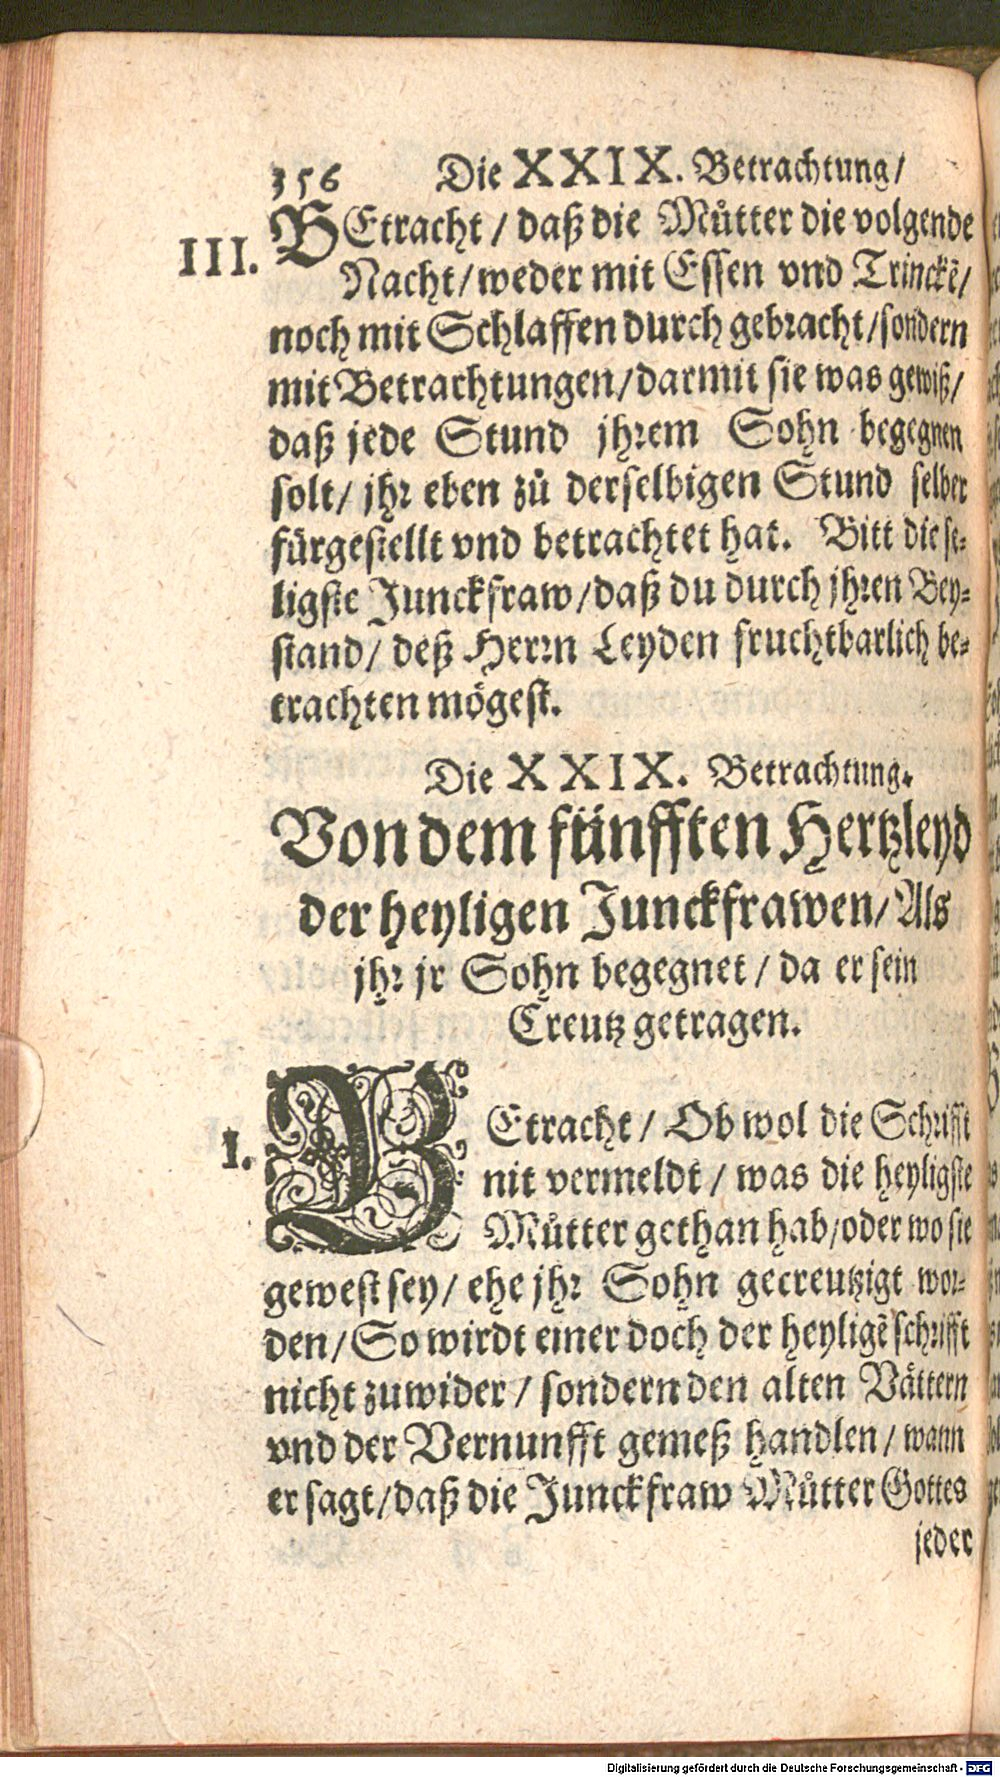 356 Die XXIX. Betrachtung/
III. BEtracht / daß die Můtter die volgende
Nacht/ weder mit Essen vnd Trinckē/
noch mit Schlaffen durch gebracht/sondern
mit Betrachtungen/darmit sie was gewiß/
daß jede Stund jhrem Sohn begegnen
solt/ jhr eben zů derselbigen Stund selber
fürgestellt vnd betrachtet hat. Bitt die se-
ligste Junckfraw/daß du durch jhren Bey-
stand/ deß Herrn Leyden fruchtbarlich be-
trachten mögest.
Die XXIX. Betrachtung.
Von dem fünfften Hertzleyd
der heyligen Junckfrawen/ Als
jhr jr Sohn begegnet / da er sein
Creutz getragen.
I. BEtracht / Ob wol die Schrifft
nit vermeldt / was die heyligste
Můtter gethan hab/oder wo sie
gewest sey/ ehe jhr Sohn gecreutzigt wor-
den/ So wirdt einer doch der heyligē schrifft
nicht zuwider / sondern den alten Vättern
vnd der Vernunfft gemeß handlen / wann
er sagt/daß die Junckfraw Můtter Gottes
jeder
Digitalisierung gefördert durch die Deutsche Forschungsgemeinschaft - DFG